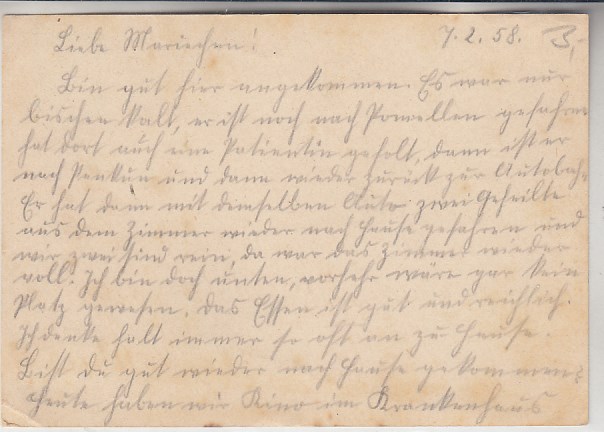 Liebe Mariechen! 7.2.58. 3,-
Bin gut hier angekommen. Es war nur
bischen kalt, er ist noch nach Pomellen gefahren
hat dort auch eine Patientin geholt, dann ist er
nach Penkun und dann wieder zurück zur Autobahn
Er hat dann mit demselben Auto zwei Geheilte
aus dem Zimmer wieder nach Hause gefahren und
wir zwei sind rein, da war das Zimmer wieder
voll. Ich bin doch unten, vorhehr wäre gar kein
Platz gewesen. Das Essen ist gut und reichlich.
Ich denke halt immer so oft an zu Hause.
Bist du gut wieder nach Hause gekommen?
Heute haben wir Kino im Krankenhaus